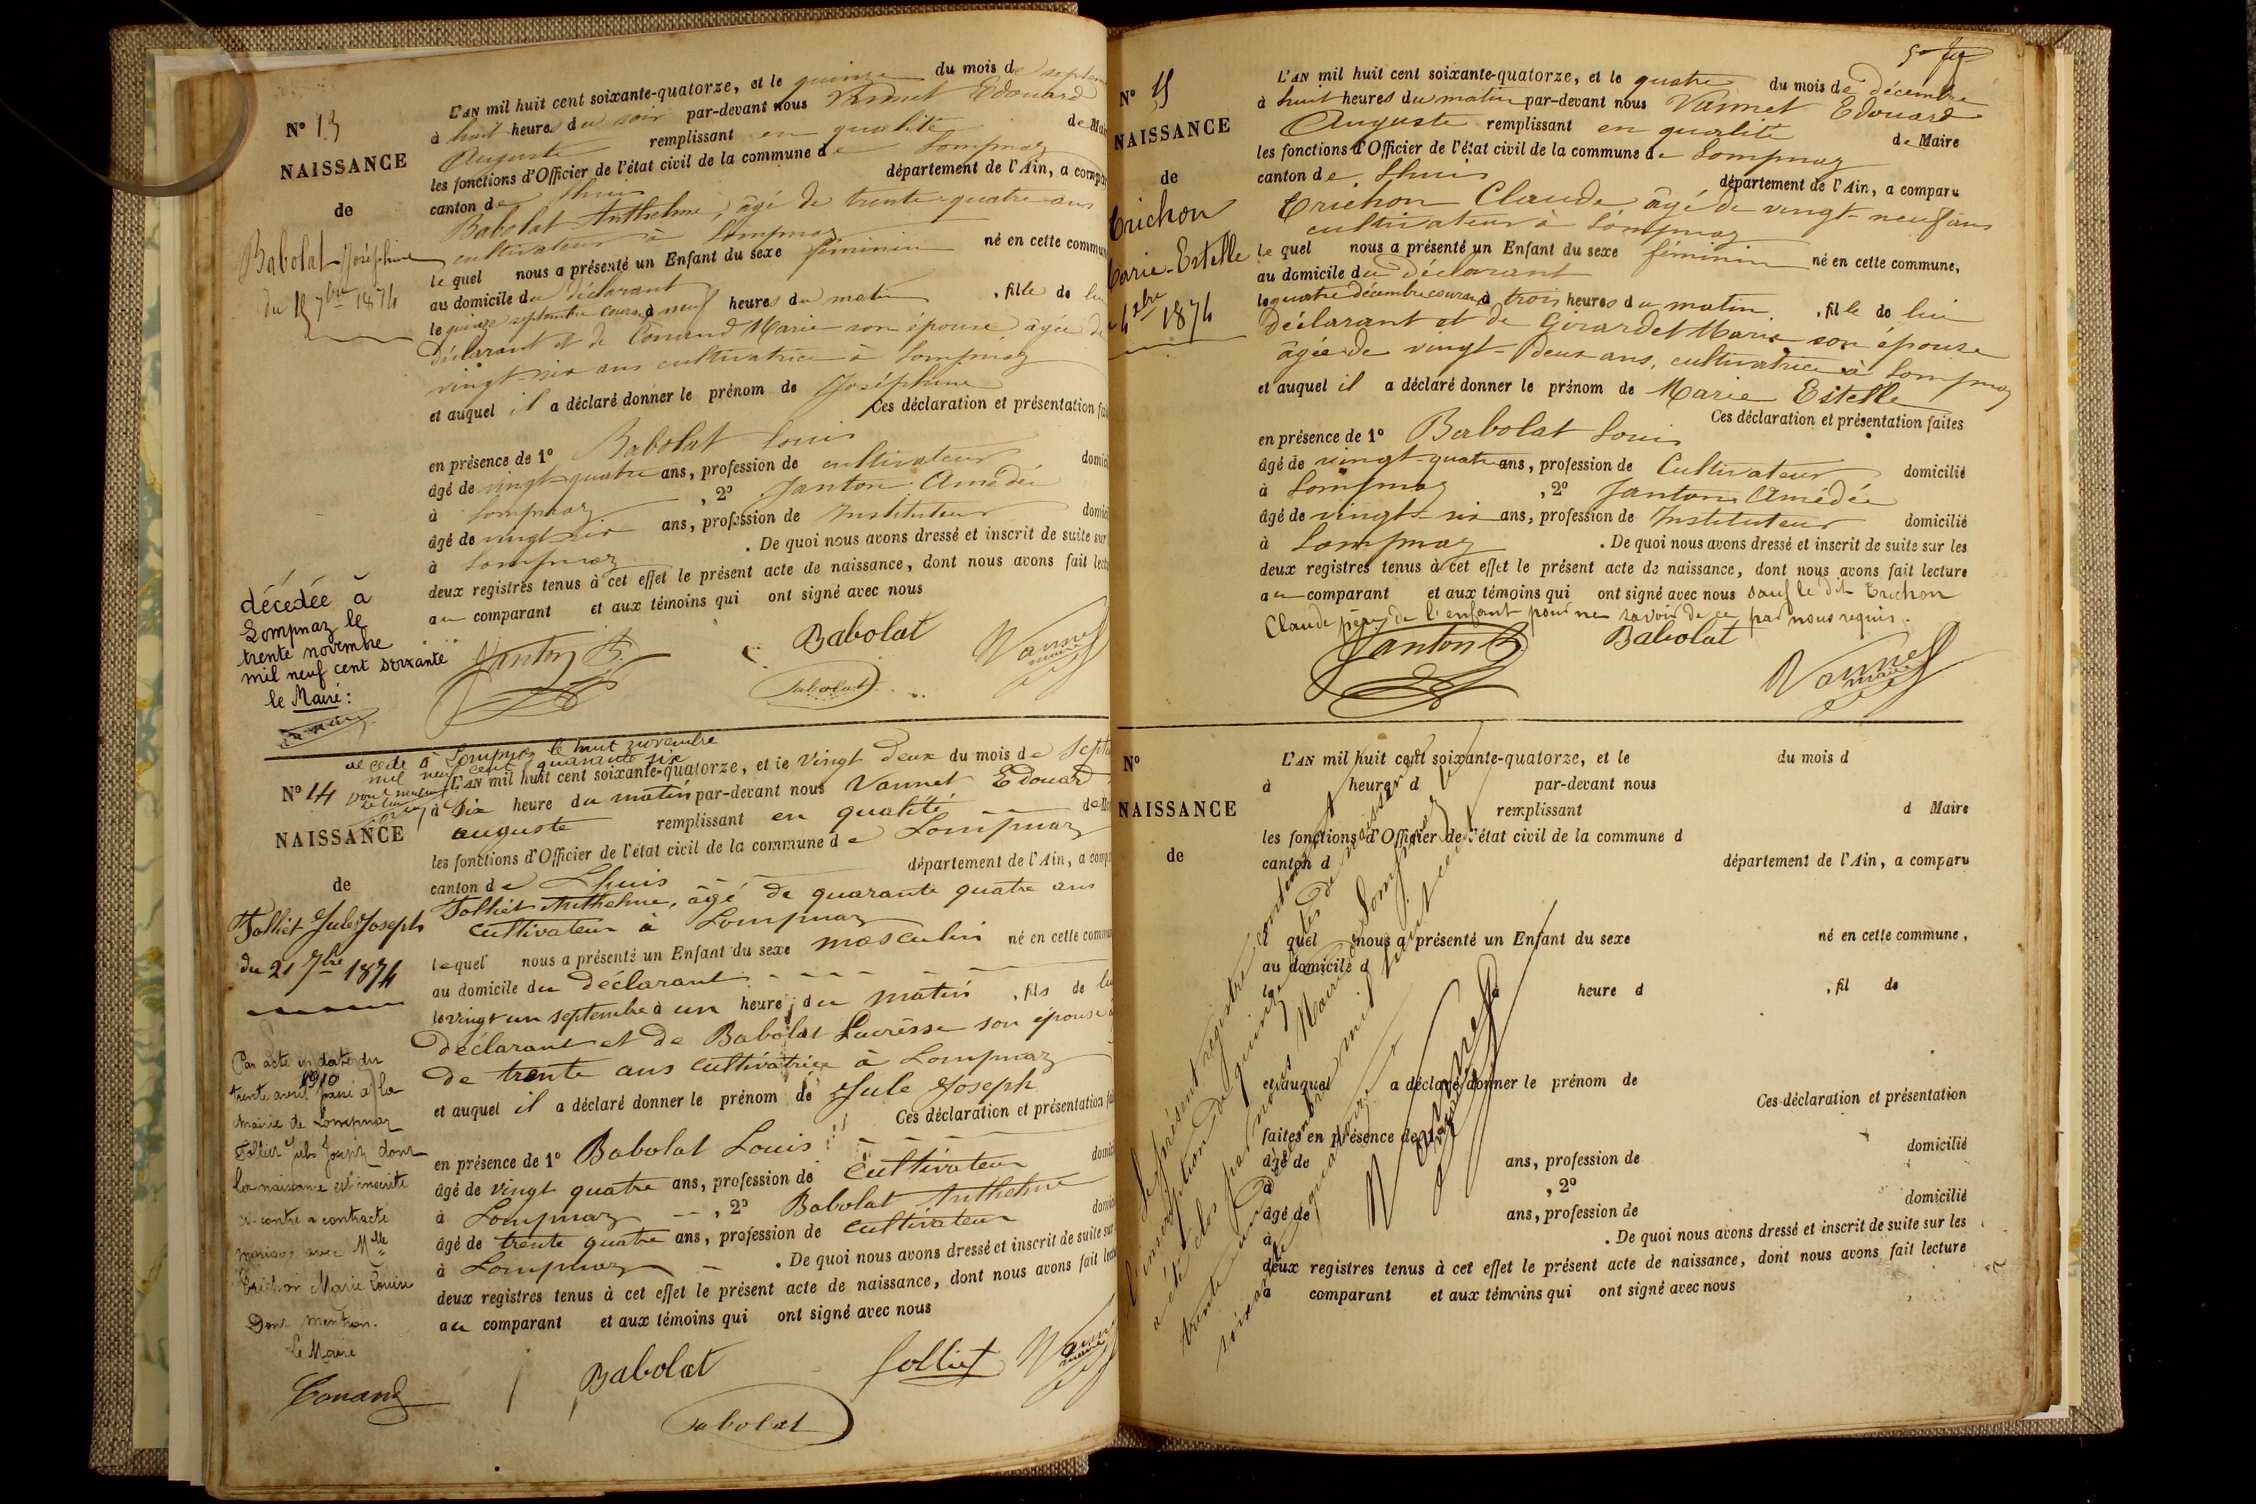 N° 13
NAISSANCE
de
Babolat Joséphine
du 15 7bre 1874
décédée à
Lompnaz le
trente novembre
mil neuf cent soixante
le Maire :
L'AN mil huit cent soixante-quatorze, et le quinze du mois de septem
à huit heures du soir par-devant nous Vannet Edouard
Auguste remplissant en qualité de Mai
les fonctions d'Officier de l'état civil de la commune de Lompnaz
canton de Lhuis département de l'Ain, a compar
Babolat Anthelme, âgé de trente-quatre ans
cultivateur à Lompnaz
le quel nous a présenté un Enfant du sexe féminin né en cette commun
au domicile du déclarant
le quinze septembre courant à neuf heures du matin , fille de lui
Déclarant et de Conand Marie son épouse âgée de
vingt-six ans cultivatrice à Lompnaz
et auquel il a déclaré donner le prénom de Joséphine
Ces déclaration et présentation fai
en présence de 1° Babolat Louis
âgé de vingt-quatre ans, profession de cultivateur domici
à Lompnaz , 2° Janton Amédée
âgé de vingt-six ans, profession de Instituteur domici
à Lompnaz . De quoi nous avons dressé et inscrit de suite sur
deux registres tenus à cet effet le présent acte de naissance, dont nous avons fait lectu
au comparant et aux témoins qui ont signé avec nous
Janton Babolat Vannet
maire
Babolat
décédé à Lompnaz le huit novembre
mil neuf cent quarante six
N° 14
NAISSANCE
de
Folliet Jule Joseph
du 21 7bre 1874
Par acte en date du
trente avril 1910 passé à la
mairie de Lompnaz
Folliet Jules Joseph dont
la naissance est inscrite
ci-contre a contracté
mariage avec Mlle
Trichon Marie Louise
Dont mention.
Le Maire
Conand
L'AN mil huit cent soixante-quatorze, et le vingt deux du mois de Septe
à Six heure du matin par-devant nous Vannet Edouard
auguste remplissant en qualité de Ma
les fonctions d'Officier de l'état civil de la commune de Lompnaz
canton de Lhuis département de l'Ain, a compa
Folliet Anthelme, âgé de quarante quatre ans
cultivateur à Lompnaz
lequel nous a présenté un Enfant du sexe masculin né en cette commu
au domicile du Déclarant
le vingt un septembre à un heure du matin , fils de lui
déclarant et de Babolat Lucresse son épouse
de trente ans cultivatrice à Lompnaz
et auquel il a déclaré donner le prénom de Jule Joseph
Ces déclaration et présentation fai
en présence de 1° Babolat Louis
âgé de vingt quatre ans, profession de cultivateur domici
à Lompnaz , 2° Babolat Anthelme
âgé de trente quatre ans, profession de cultivateur domici
à Lompnaz . De quoi nous avons dressé et inscrit de suite sur
deux registres tenus à cet effet le présent acte de naissance, dont nous avons fait lectu
au comparant et aux témoins qui ont signé avec nous
Babolat Folliet Vannet
maire
Babolat
N° 15
NAISSANCE
de
Trichon
Marie-Estelle
4 xbre 1874
L'AN mil huit cent soixante-quatorze, et le quatre du mois de décembre
à huit heures du matin par-devant nous Vannet Edouard
Auguste remplissant en qualité de Maire
les fonctions d'Officier de l'état civil de la commune de Lompnaz
canton de Lhuis département de l'Ain, a comparu
Trichon Claude âgé de vingt-neuf ans
cultivateur à Lompnaz
le quel nous a présenté un Enfant du sexe féminin né en cette commune,
au domicile du déclarant
le quatre décembre courant à trois heures du matin , fille de lui
Déclarant et de Girardet Marie son épouse
âgée de vingt-deux ans, cultivatrice à Lompnaz
et auquel il a déclaré donner le prénom de Marie Estelle
Ces déclaration et présentation faites
en présence de 1° Babolat Louis
âgé de vingt-quatre ans, profession de Cultivateur domicilié
à Lompnaz , 2° Janton Amédée
âgé de vingt-six ans, profession de Instituteur domicilié
à Lompnaz . De quoi nous avons dressé et inscrit de suite sur les
deux registres tenus à cet effet le présent acte de naissance, dont nous avons fait lecture
au comparant et aux témoins qui ont signé avec nous sauf le dit Trichon
Claude père de l'enfant pour ne savoir de ce par nous requis.
Janton Babolat Vannet
maire
N°
NAISSANCE
de
L'AN mil huit cent soixante-quatorze, et le du mois d
à heures d par-devant nous
remplissant d Maire
les fonctions d'Officier de l'état civil de la commune d
canton d département de l'Ain, a comparu
l quel nous a présenté un Enfant du sexe né en cette commune,
au domicile d
le à heure d , fil de
et auquel a déclaré donner le prénom de
Ces déclaration et présentation
faites en présence de 1°
âgé de ans, profession de domicilié
à , 2°
âgé de ans, profession de domicilié
à . De quoi nous avons dressé et inscrit de suite sur les
deux registres tenus à cet effet le présent acte de naissance, dont nous avons fait lecture
a comparant et aux témoins qui ont signé avec nous
Le présent registre contenant
l'inscription de quinze actes de naissances
a été clos par nous Maire de Lompnaz le
trente un décembre mil huit cent
soixante quatorze
Vannet
maire